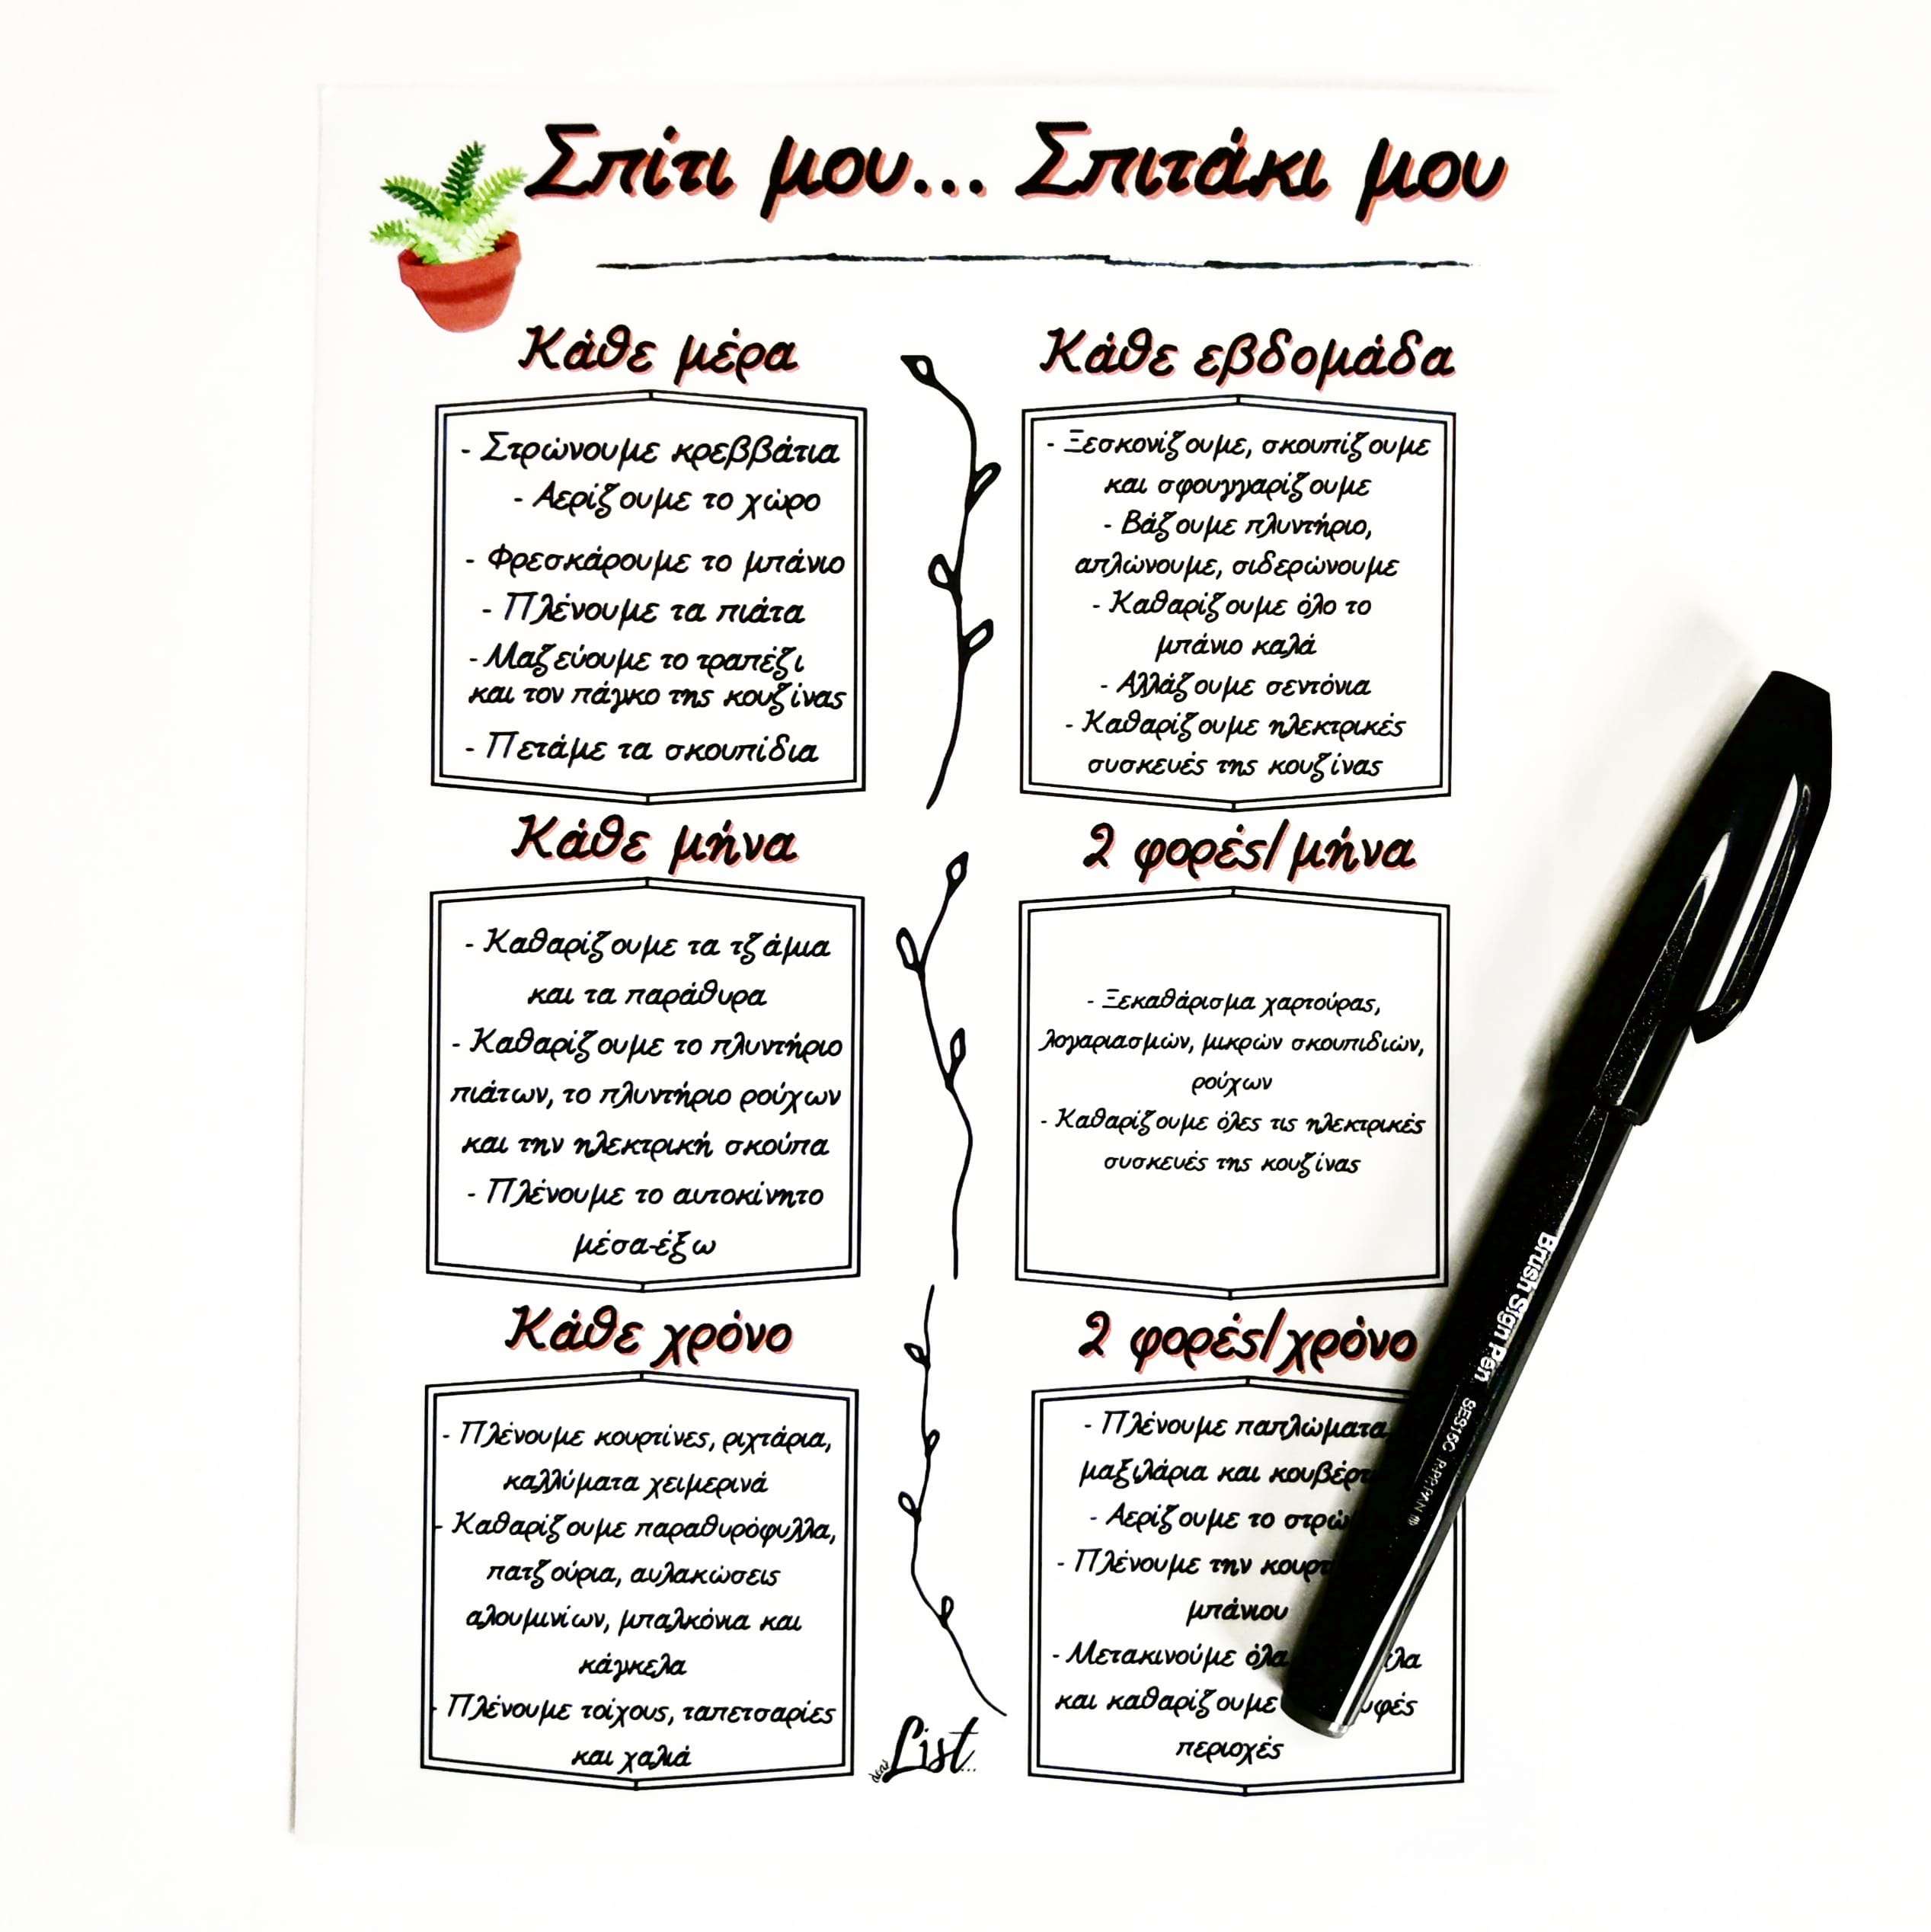 Σπίτι μου... Σπιτάκι μου
Κάθε μέρα
- Στρώνουμε κρεββάτια
- Αερίζουμε το χώρο
- Φρεσκάρουμε το μπάνιο
- Πλένουμε τα πιάτα
- Μαζεύουμε το τραπέζι
και τον πάγκο της κουζίνας
- Πετάμε τα σκουπίδια
Κάθε εβδομάδα
- Ξεσκονίζουμε, σκουπίζουμε
και σφουγγαρίζουμε
- Βάζουμε πλυντήριο,
απλώνουμε, σιδερώνουμε
- Καθαρίζουμε όλο το
μπάνιο καλά
- Αλλάζουμε σεντόνια
- Καθαρίζουμε ηλεκτρικές
συσκευές της κουζίνας
Κάθε μήνα
- Καθαρίζουμε τα τζάμια
και τα παράθυρα
- Καθαρίζουμε το πλυντήριο
πιάτων, το πλυντήριο ρούχων
και την ηλεκτρική σκούπα
- Πλένουμε το αυτοκίνητο
μέσα-έξω
2 φορές/μήνα
- Ξεκαθάρισμα χαρτούρας,
λογαριασμών, μικρών σκουπιδιών,
ρούχων
- Καθαρίζουμε όλες τις ηλεκτρικές
συσκευές της κουζίνας
Κάθε χρόνο
- Πλένουμε κουρτίνες, ριχτάρια,
καλλύματα χειμερινά
- Καθαρίζουμε παραθυρόφυλλα,
πατζούρια, αυλακώσεις
αλουμινίων, μπαλκόνια και
κάγκελα
- Πλένουμε τοίχους, ταπετσαρίες
και χαλιά
2 φορές/χρόνο
- Πλένουμε παπλώματα
μαξιλάρια και
- Αερίζουμε το
- Πλένουμε την
μπάνιου
- Μετακινούμε όλα
και καθαρίζουμε
περιοχές
List...
Brush Sign Pen
SES15C